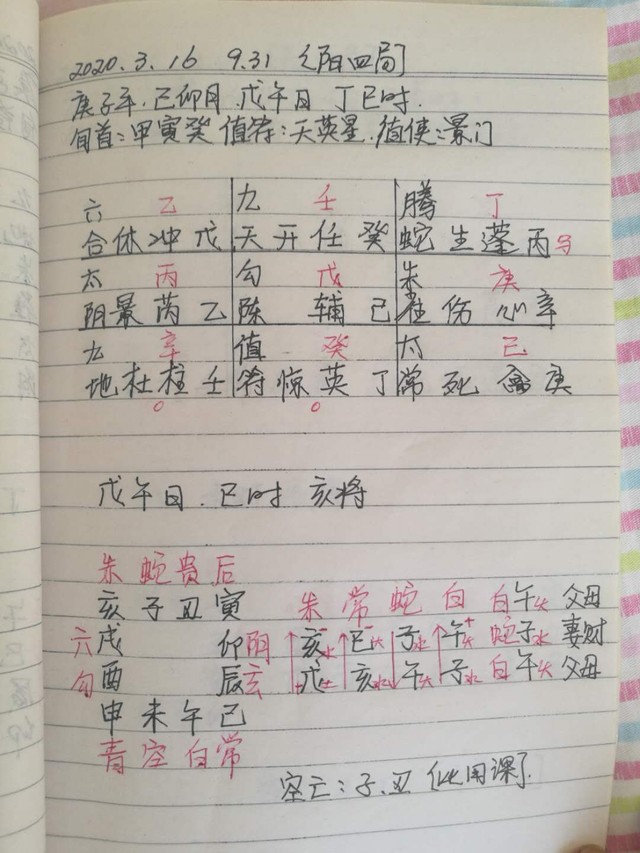 2020.3.16 9.31 〈阳四局〉
庚子年.己卯月.戊午日 丁巳时.
旬首:甲寅癸 值符:天英星.值使:景门
六 乙 九 壬 腾 丁
合休冲戊 天开任癸 蛇生蓬丙
太 丙 勾 戊 朱 庚
阴景芮乙 陈 辅己 雀伤心辛
九 辛 值 癸 太 己
地杜柱壬 符惊英丁 常死禽庚
戊午日.巳时 亥将
朱蛇贵后
亥子丑寅 朱常蛇白 白午火 父母
六戌 卯阴 亥水 巳火 子水 午火 蛇子水 妻财
勾酉 辰玄 戊土 亥水 午火 子水 白午火 父母
申未午巳
青空白常
空亡:子.丑